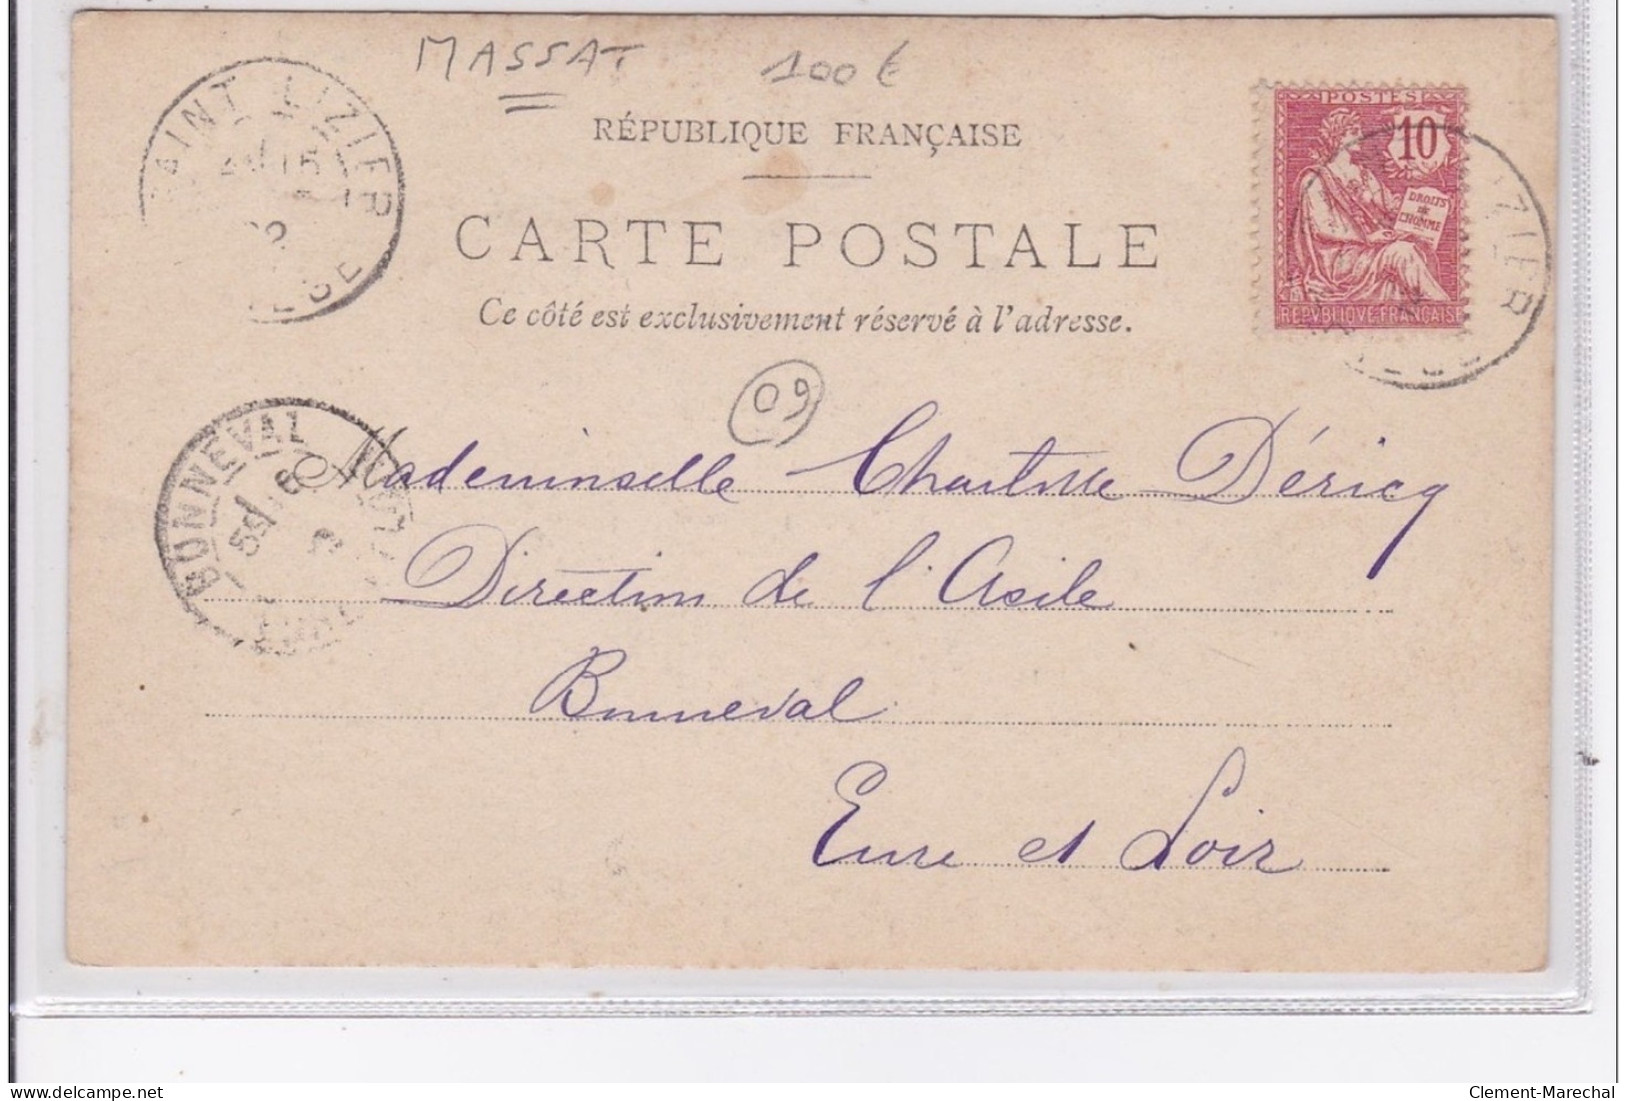 MASSAT
100 €
SAINT LIZIER
RÉPUBLIQUE FRANÇAISE
CARTE POSTALE
Ce côté est exclusivement réservé à l'adresse.
POSTES
10
DROITS
de
L'HOMME
REPUBLIQUE FRANÇAISE
09
BONNEVAL
Mademoiselle Déricq
Direction de l'Asile
Bonneval
Eure et Loir
www.delcampe.net
Clement-Marechal